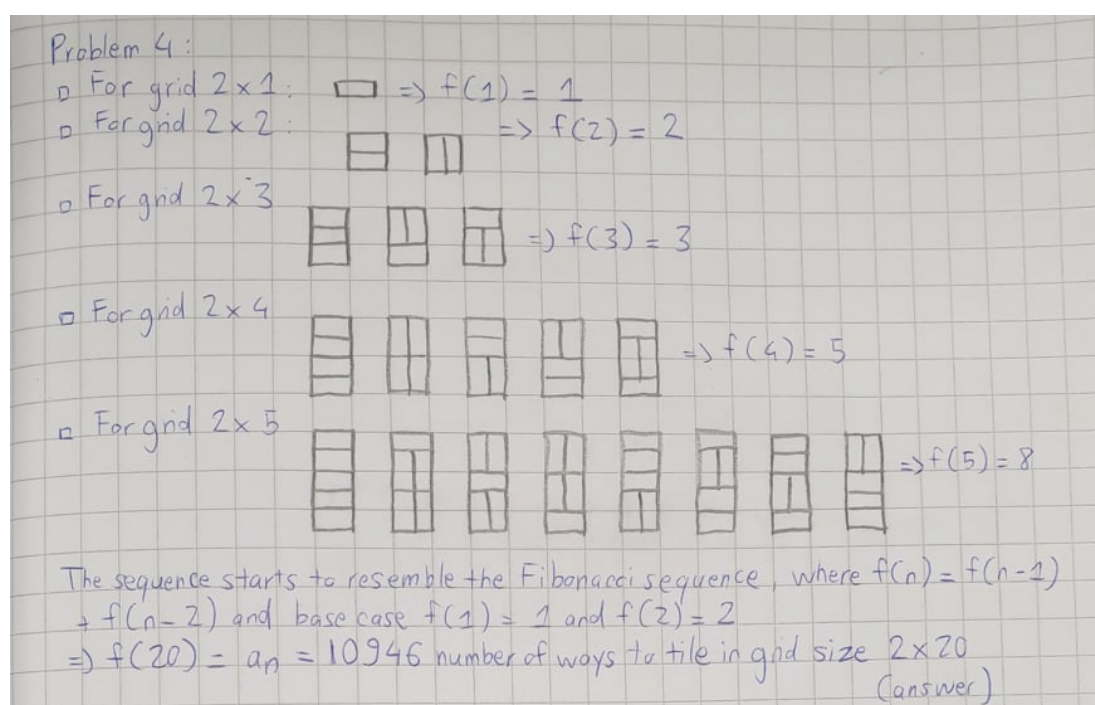 Problem 4:
▫ For grid 2×1: => f(1) = 1
▫ For grid 2×2: => f(2) = 2
▫ For grid 2×3 => f(3) = 3
▫ For grid 2×4 => f(4) = 5
▫ For grid 2×5 => f(5) = 8
The sequence starts to resemble the Fibonacci sequence, where f(n) = f(n-1)
+ f(n-2) and base case f(1) = 1 and f(2) = 2
=> f(20) = an = 10946 number of ways to tile in grid size 2×20
(answer)